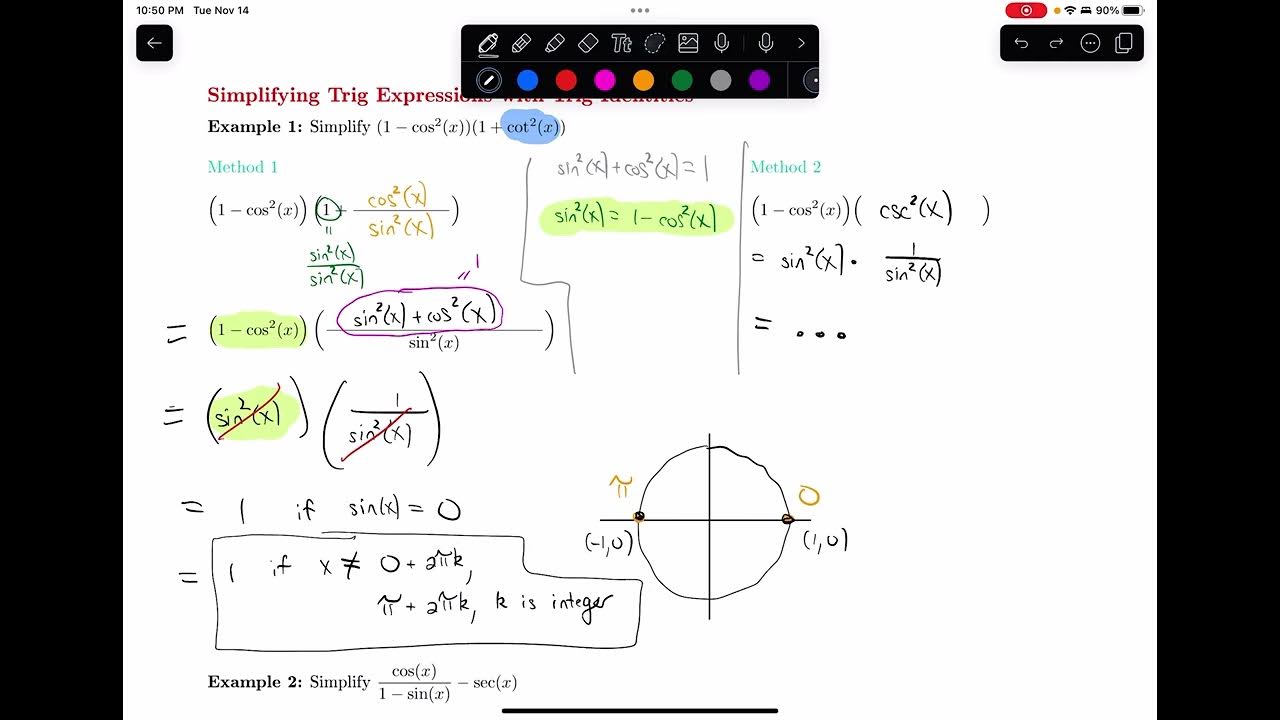 10:50 PM Tue Nov 14
90%
Tt
Simplifying Trig Expressions with Trig Identities
Example 1: Simplify (1 − cos²(x))(1 + cot²(x))
Method 1
(1 − cos²(x)) (1 + cos²(x)/sin²(x))
"
sin²(x)/sin²(x)
" 1
= (1 − cos²(x)) ((sin²(x) + cos²(x))/sin²(x))
= (sin²(x)) (1/sin²(x))
= 1 if sin(x) = 0
= 1 if x ≠ 0 + 2πk,
π + 2πk, k is integer
sin²(x) + cos²(x) = 1
sin²(x) = 1 − cos²(x)
Method 2
(1 − cos²(x)) ( csc²(x) )
= sin²(x) · 1/sin²(x)
= ...
π
0
(-1,0)
(1,0)
Example 2: Simplify cos(x)/(1 − sin(x)) − sec(x)